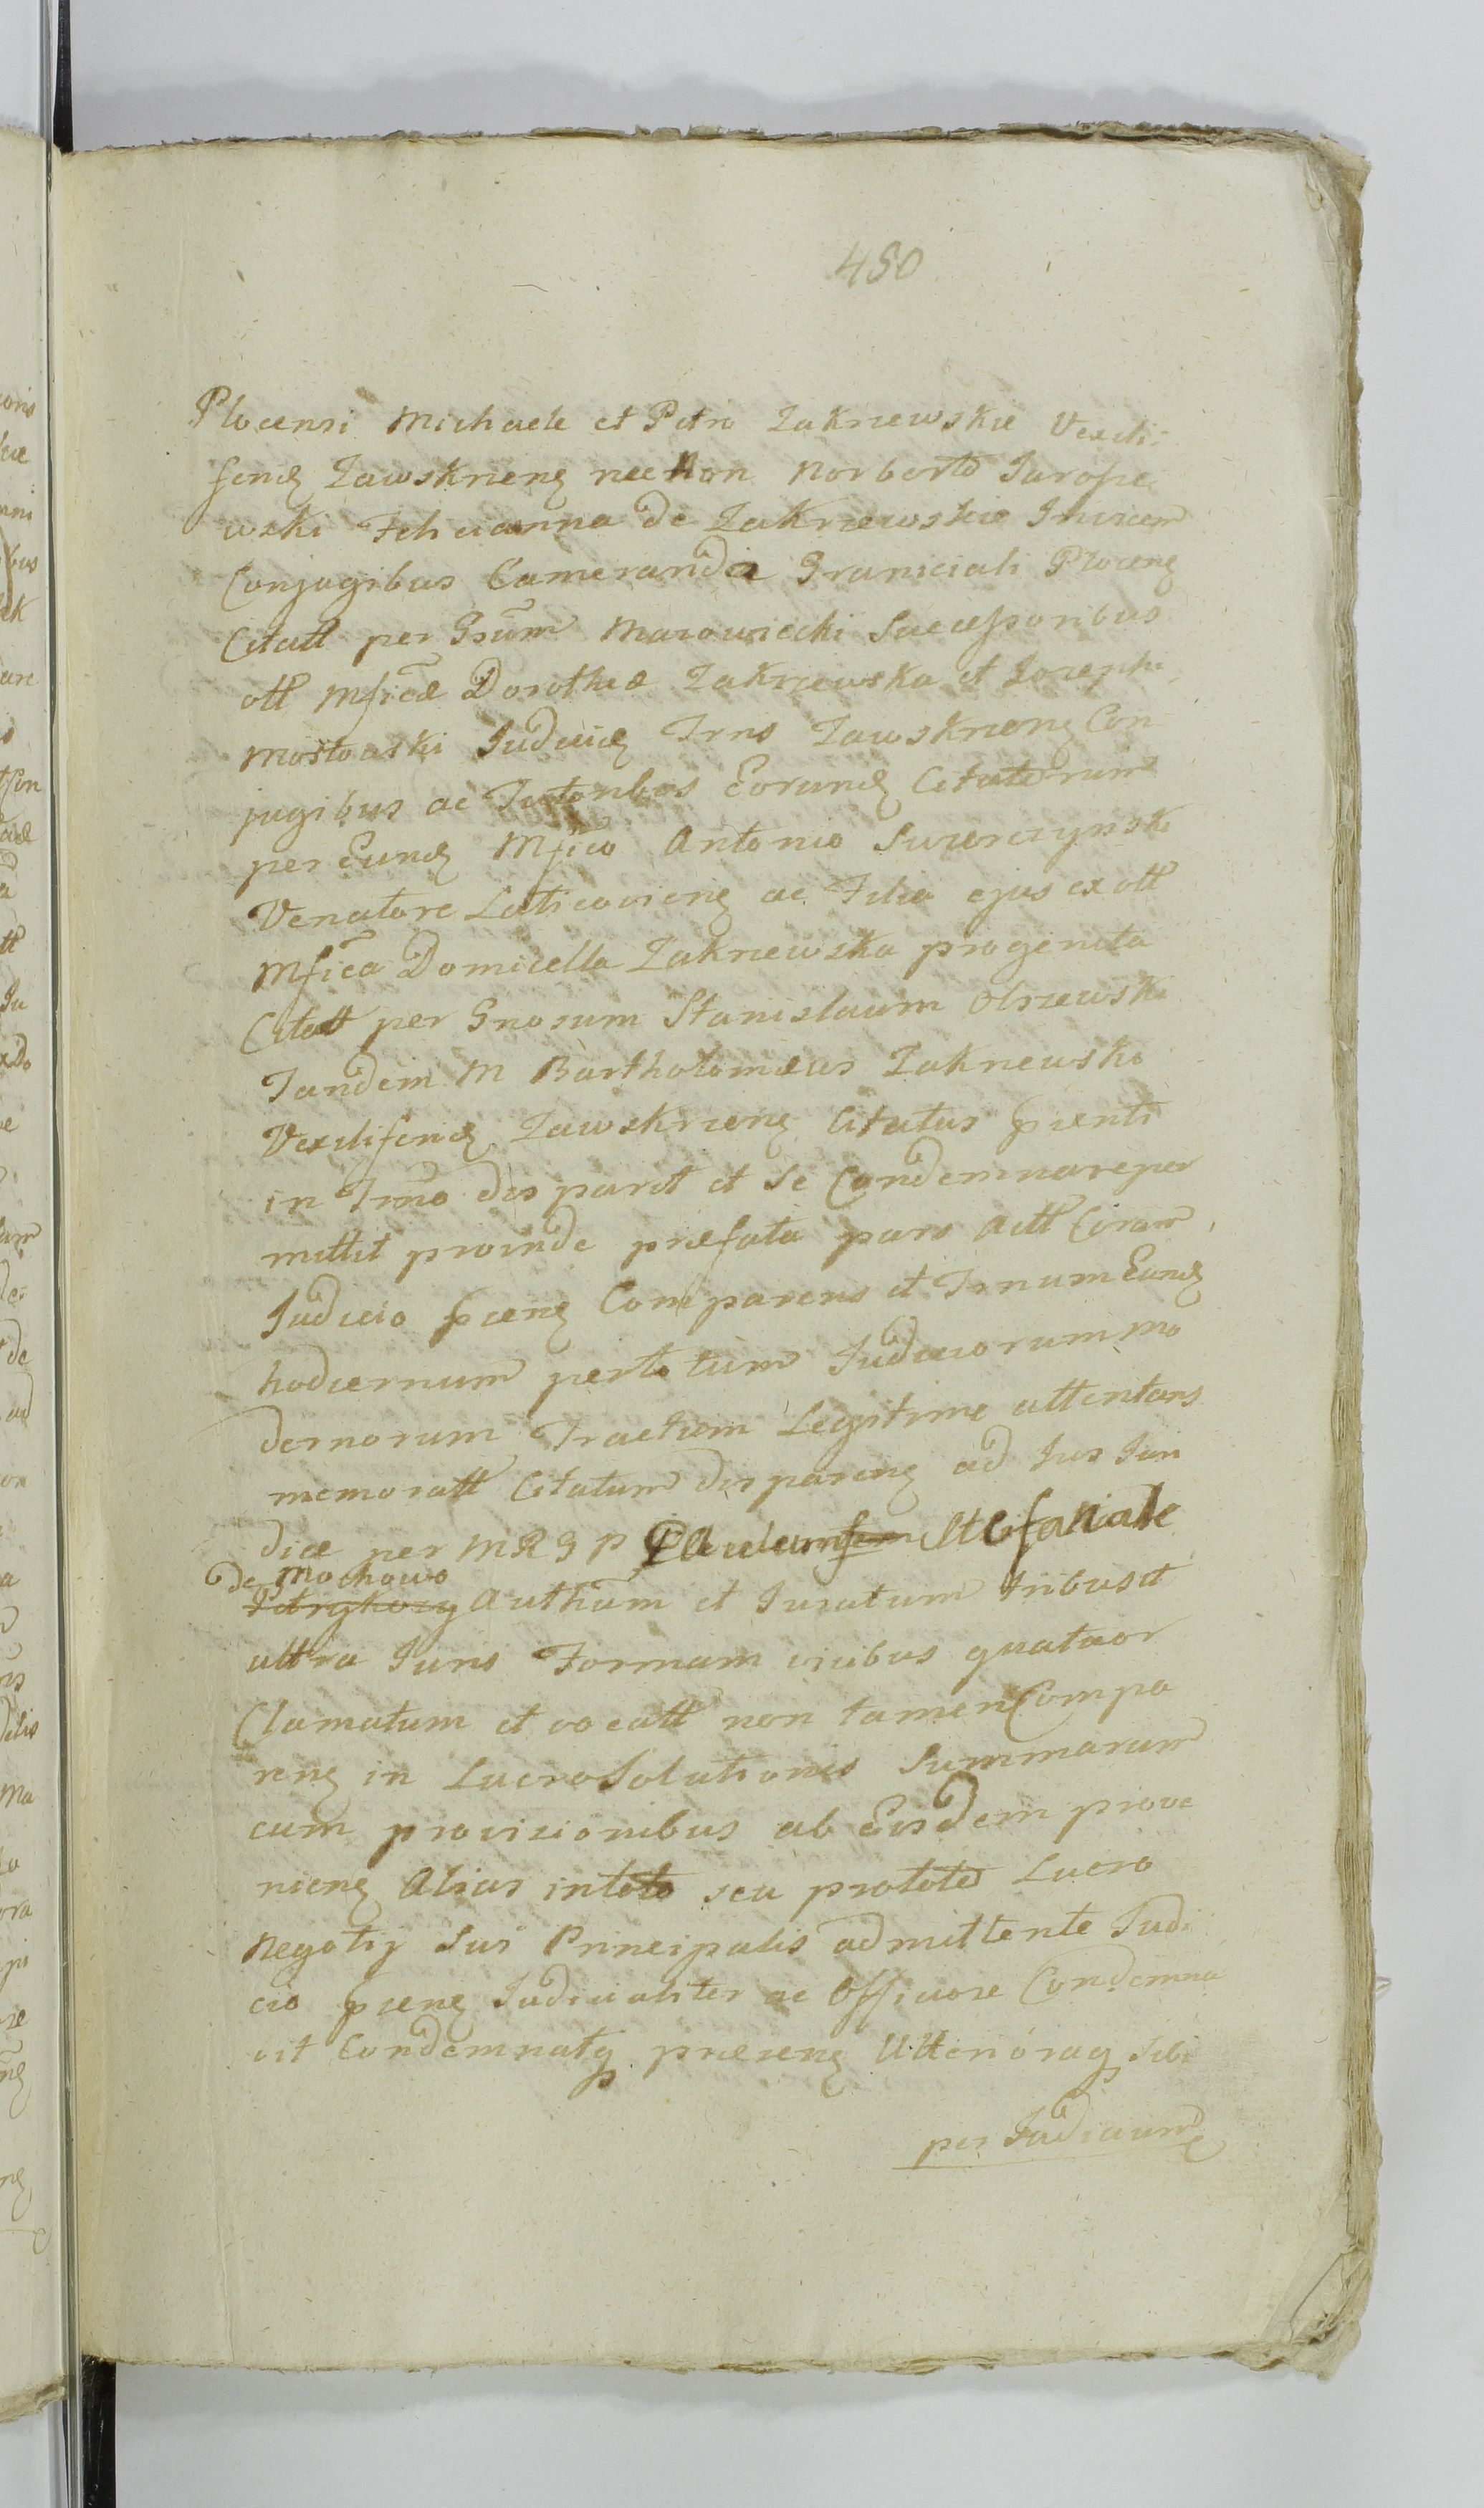 480
Plocensi Michaele et Petro Zakrzewskie Vexilli
feriđ Zawskrzenȩ nec Non Norberto Jarosze
wski Felicianna de Zakrzewskie Invicem
Conjugibus Camerarida Graniciali Plocenȩ
Citatt per Gsum Mazowiecki Successoribus
ott Mficæ Dorotheæ Zakrzewska et Josephi
Mostowski Judiciȩ Trris Zawskrzenȩ Con
jugibus ac Tutoribus Eorunđ Citatorum
per Eunđ Mfico Antonio Swierczynski
Venatore Laticoviens ac Filia ejus ex ott
Mfica Domicella Zakrzewska progenita
Citatt per Gnosum Stanislaum Olszewski
Tandem M Bartholomæus Zakrzewski
Vexilliferiđ Zawskrzenȩ Citatus pñenti
in Trmo disparet et se Condemnare per
mittit proinde præfata pars Actt Coram
Judicio pñenȩ Comparens et Trnum Eunđ
hodiernum per totum Judiciorum mo
dernorum Tractum Legitime attentans
memoratt Citatum disparenȩ ad Jus Juri
dice per M R G P Paulum Stefaniak
de Mochowo
Authum et Juratum tribus et
ultra Juris Formam vicibus quatuor
Clamatum et vocatt non tamen Compa
renȩ in Lucro Solutionis Summarum
cum provizionibus ab Eisdem prove
nienȩ Alias in toto seu pro toto Lucro
Negotij Sui Principalis admittente Judi
cio pñenȩ Judicialiter ac Officiose Condemna
vit Condemnatq præsenȩ Ulterioraq Sibi
per Judicium